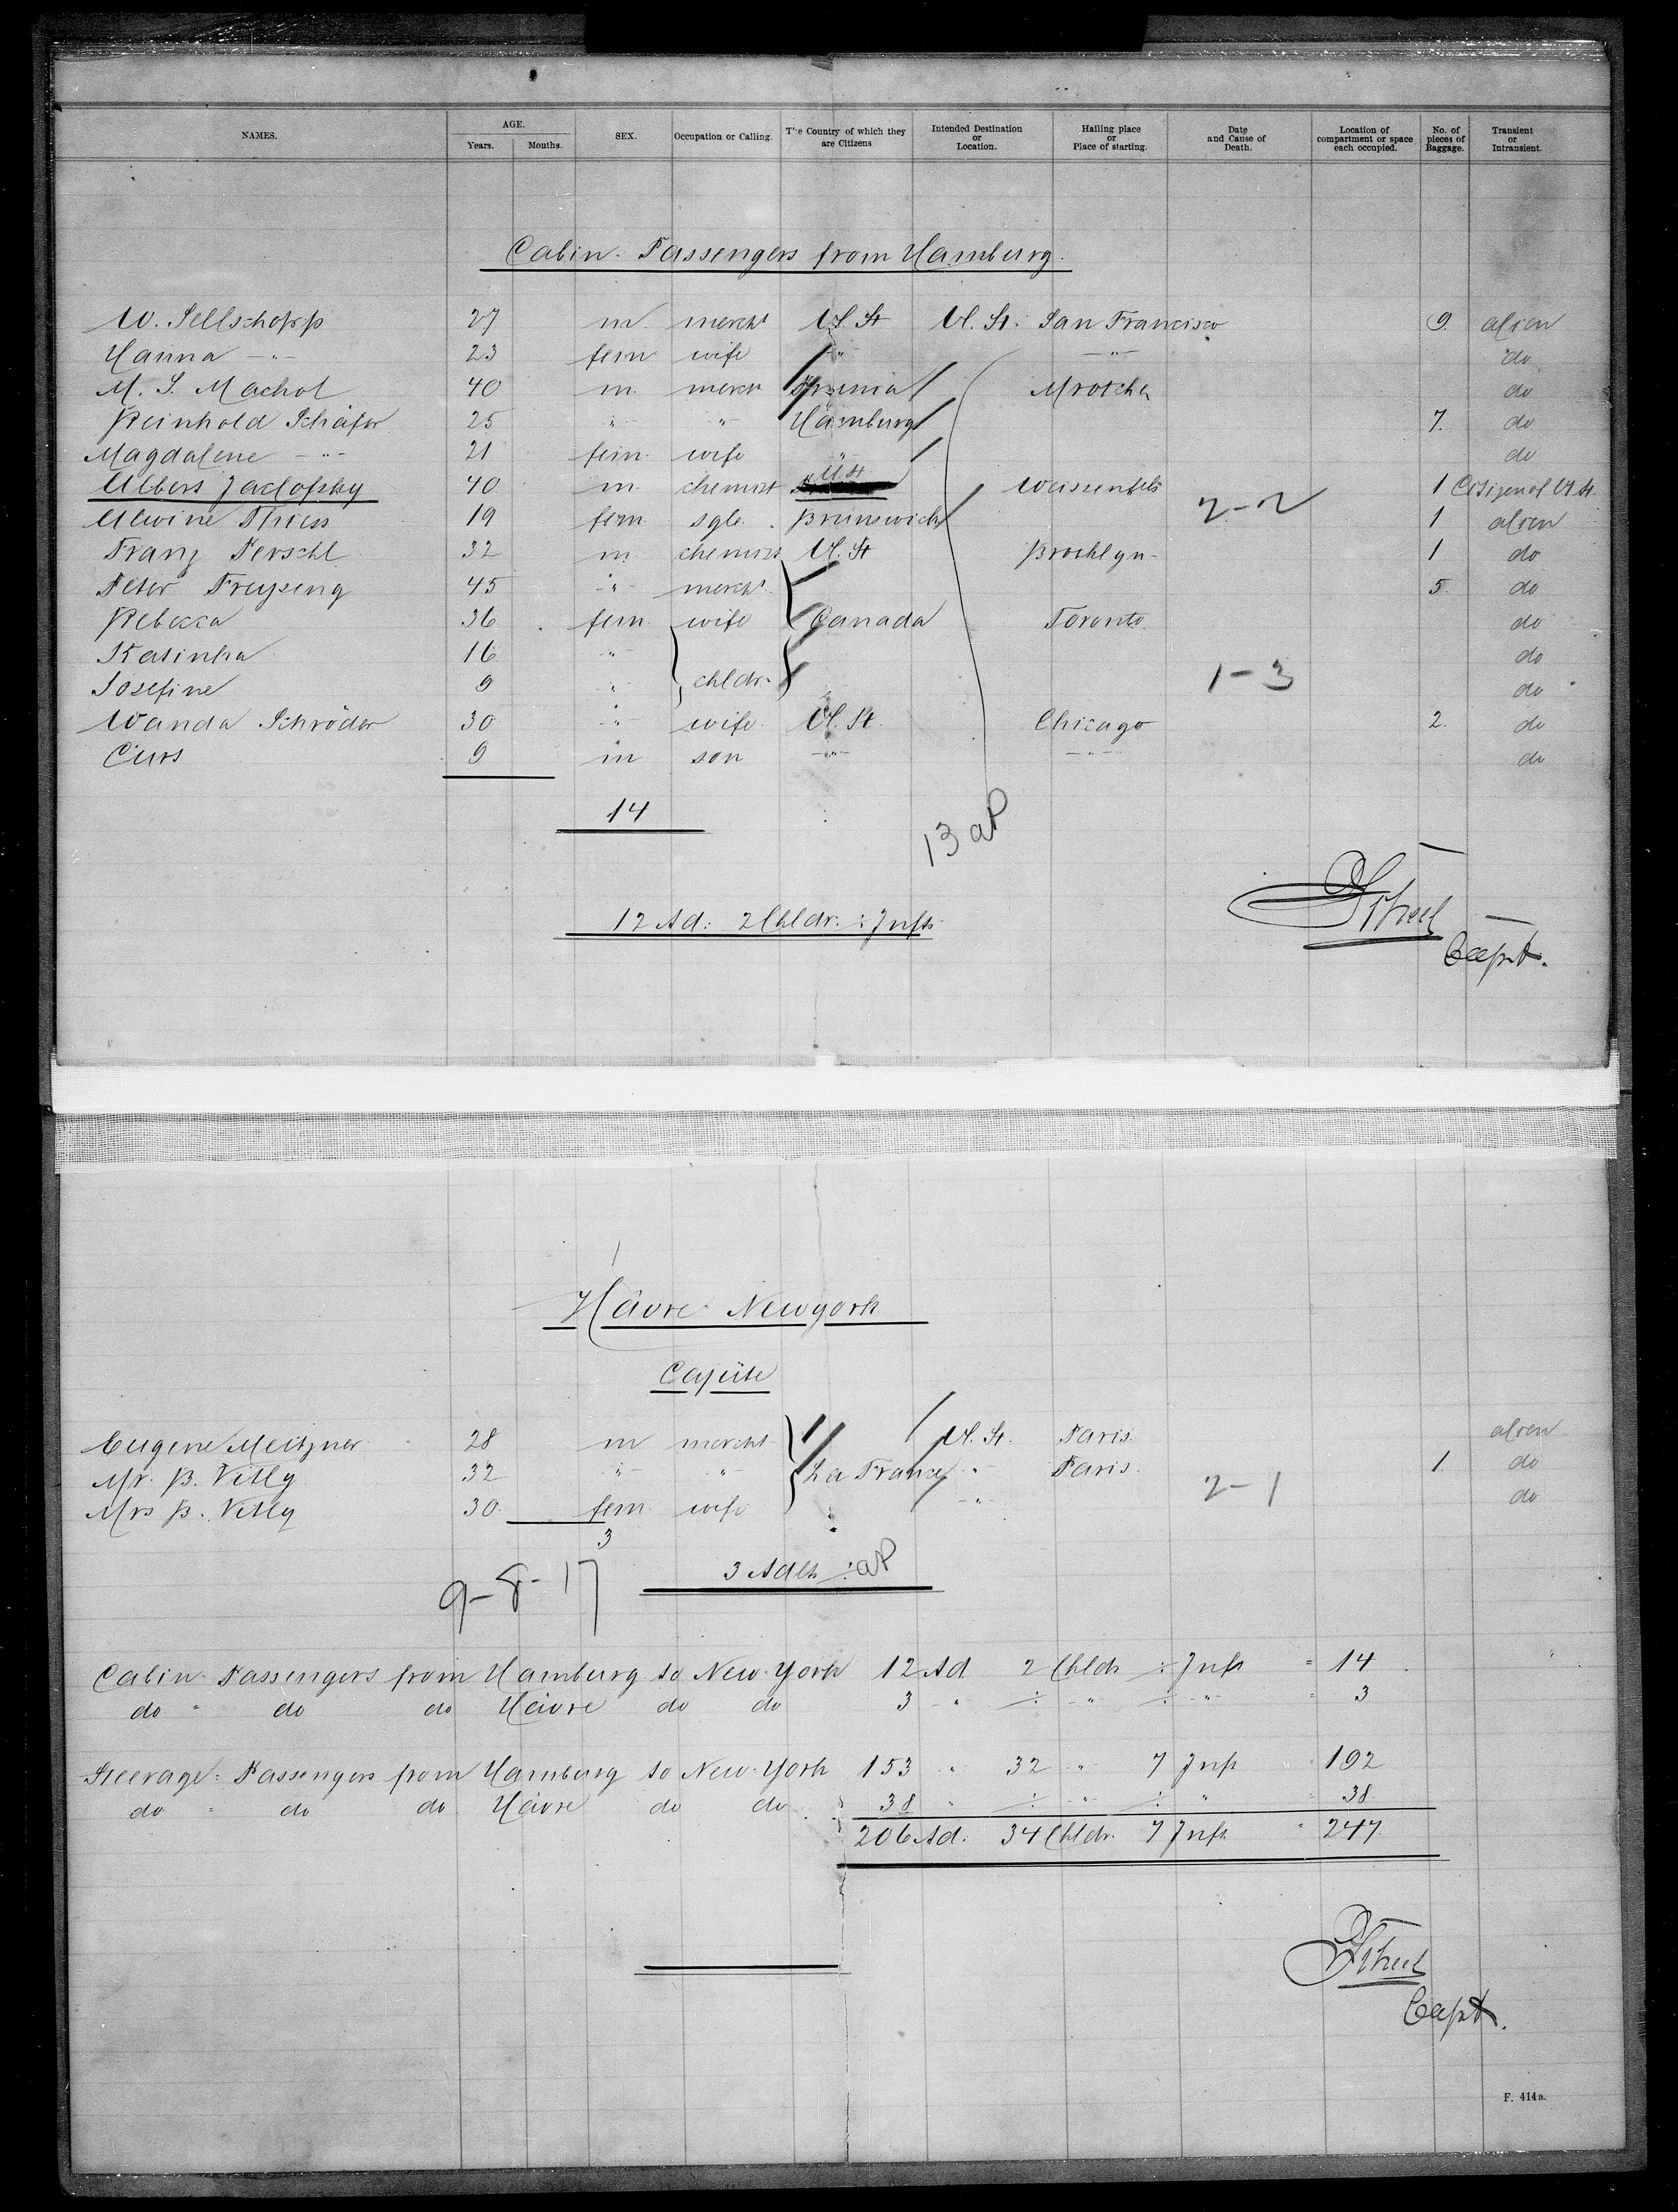 NAMES. AGE. Years. Months. SEX. Occupation or Calling. The Country of which they are Citizens Intended Destination or Location. Hailing place or Place of starting. Date and Cause of Death. Location of compartment or space each occupied. No. of pieces of Baggage. Transient or Intransient.
Cabin-Passengers from Hamburg.
W. Sellschopp 27 m. mercht U. St U. St. San Francisco 9. alien
Hanna -"- 23 fem wife -"- -"- do
M. S. Machol 40 m. mercht Prussia Mrotschen do
Reinhold Schäfer 25 " " Hamburg 7. do
Magdalene -"- 21 fem. wife " do
Albert Jaclofsky 40 m. chemist U St Weissenfels 1 Citizen of U. St.
Alwine Thiess 19 fem sgle. Brunswick 2-2 1 alien
Franz Perschl 32 m. chemist U. St Brooklyn 1 do
Peter Freyseng 45 -"- mercht. 5. do
Rebecca 36 fem. wife Canada Toronto do
Katinka 16 -"- do
Josefine 9 " chldr. 1-3 do
Wanda Schröder 30 -"- wife. U. St. Chicago 2. do
Curt 9 m son -"- -"- do
14
13 aP
12 Ad: 2 Chldr. ÷ Infts
Capt.
Hâvre-Newyork
Cajüte
Eugene Meitzner 28 m mercht U. St. Paris. alien
Mr. B. Vitly 32 -"- -"- La France -"- Paris. 1. do
Mrs B. Vitly 30. fem. wife " -"- 2-1 do
3
3 Adlts ÷ aP
9-8-17
Cabin-Passengers from Hamburg to New-York 12 Ad 2 Chldr ÷ Inft = 14
do = do do Hâvre do do 3 -"- ÷ -"- ÷ -"- = 3
Steerage-Passengers from Hamburg to New-York 153 " 32 " 7 Inft " 192
do = do do Hâvre do do 38 " ÷ -"- ÷ " = 38
206 Ad. 34 Chldr. 7 Inft. = 247.
Capt.
F. 414a.